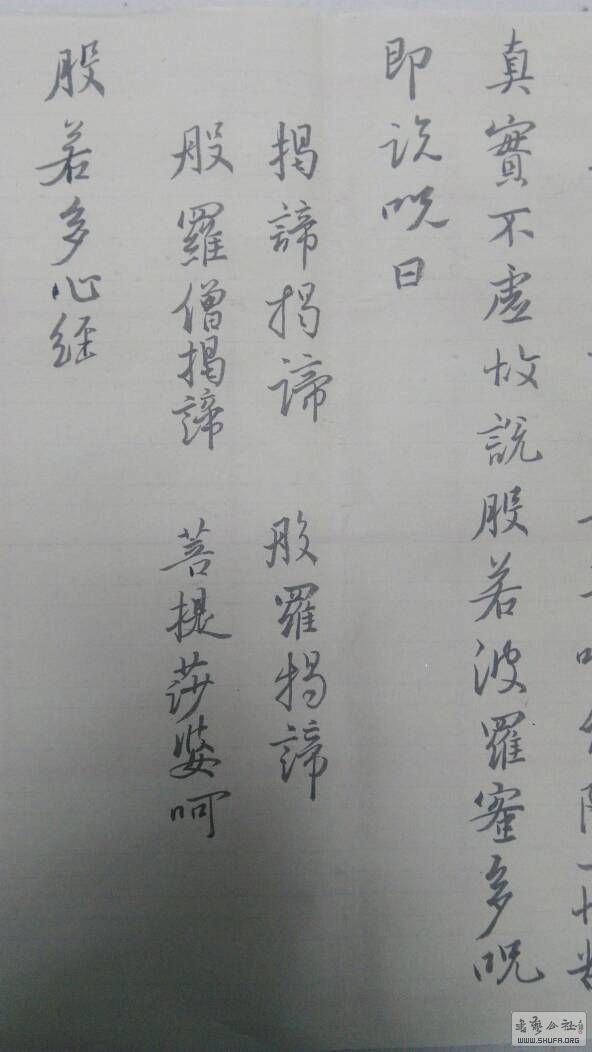 真實不虛故說般若波羅蜜多呪
即说呪曰
揭諦揭諦 般羅揭諦
般羅僧揭諦 菩提莎婆呵
般若多心经
書藝公社
WWW.SHUFA.ORG